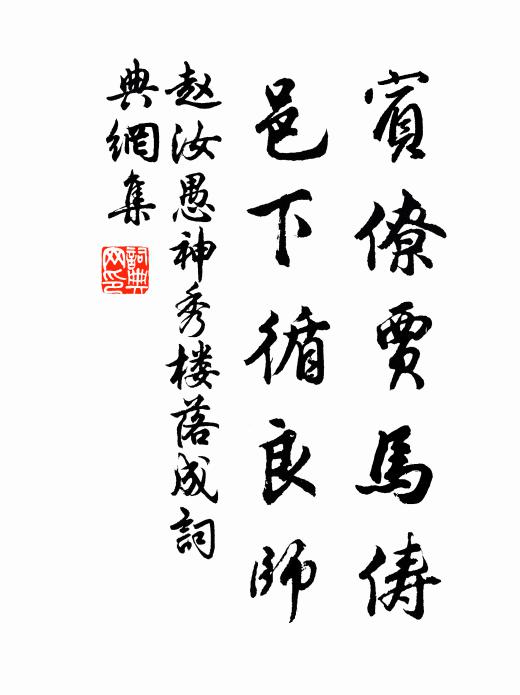 賓僚賈馬儔
邑下循良師
赵汝愚神秀楼落成詞
典網集
詞典
网印